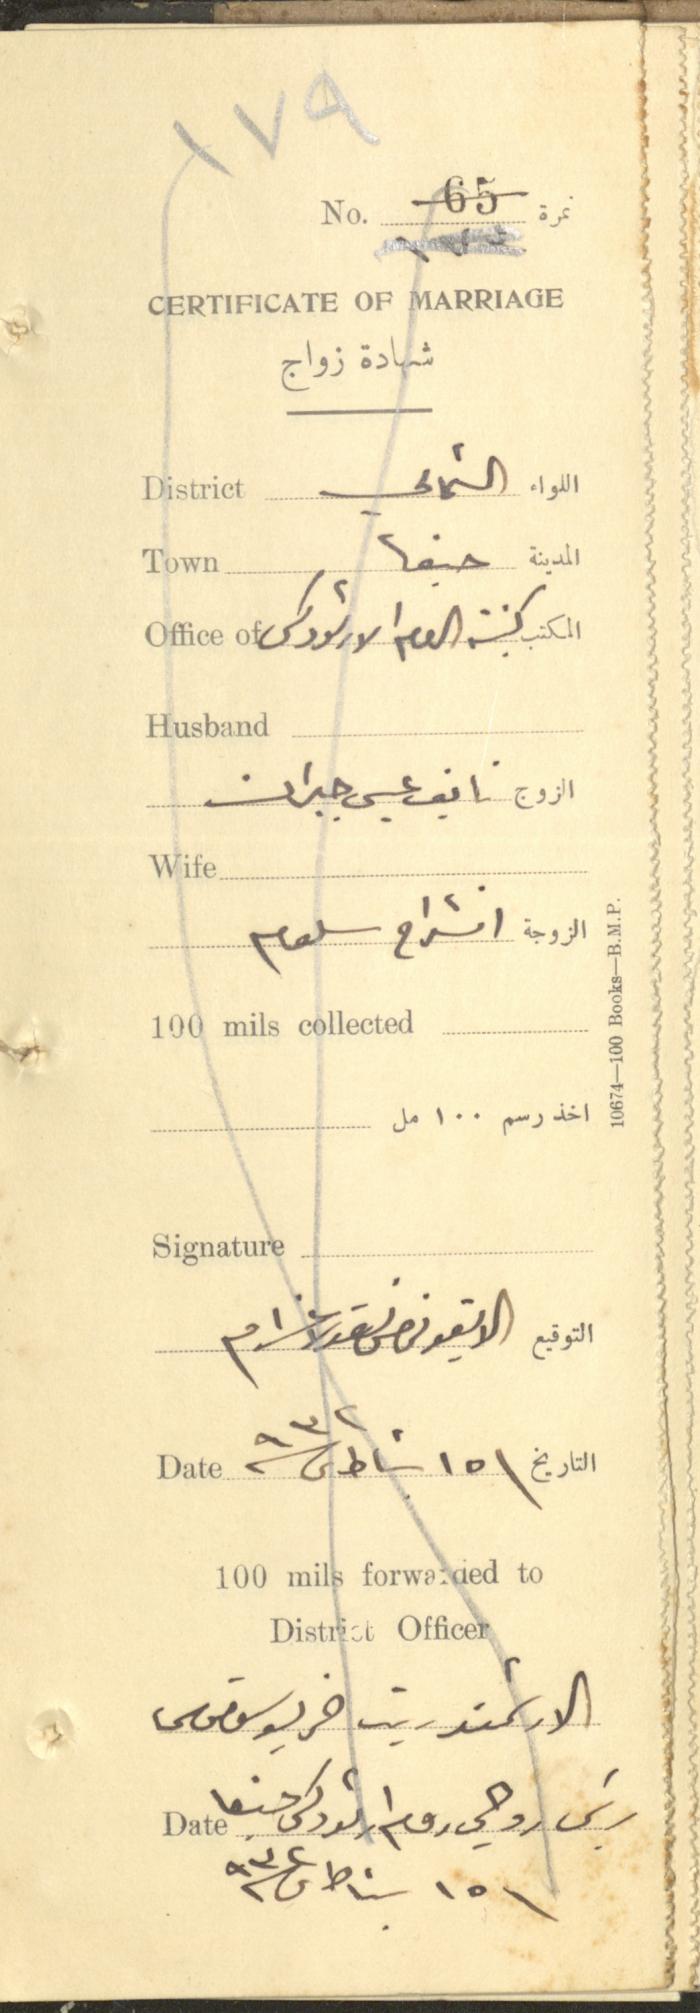 ١٧٩
No. 65 نمرة
CERTIFICATE OF MARRIAGE
شهادة زواج
District الشمالي اللواء
Town حيفا المدينة
Office of كنيسة الروم الارثوذكس المكتب
Husband
الزوج نايف عيسى جبران
Wife
الزوجة انشراح سلوم
100 mils collected
اخذ رسم ١٠٠ مل
Signature
التوقيع
Date ١٥ شباط سنة ٩٣٢ التاريخ
100 mils forwarded to
District Officer
الارشمندريت
Date رئيس روحي روم ارثوذكس حيفا
١٥ شباط سنة ٩٣٢
10674—100 Books—B.M.P.